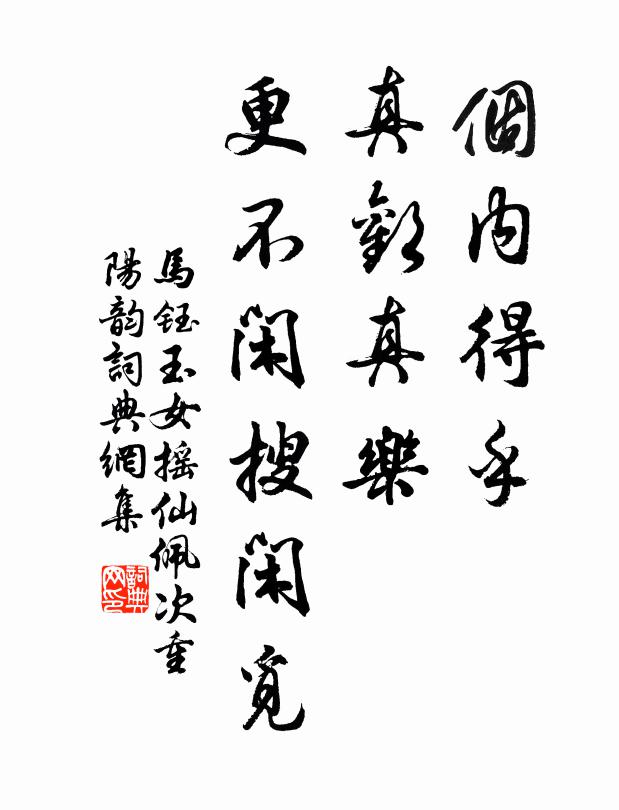 個内得乎
真歡真樂
更不閑搜閑覓
馬鈺玉女摇仙佩次重
陽韵詞典網集
詞典
网印